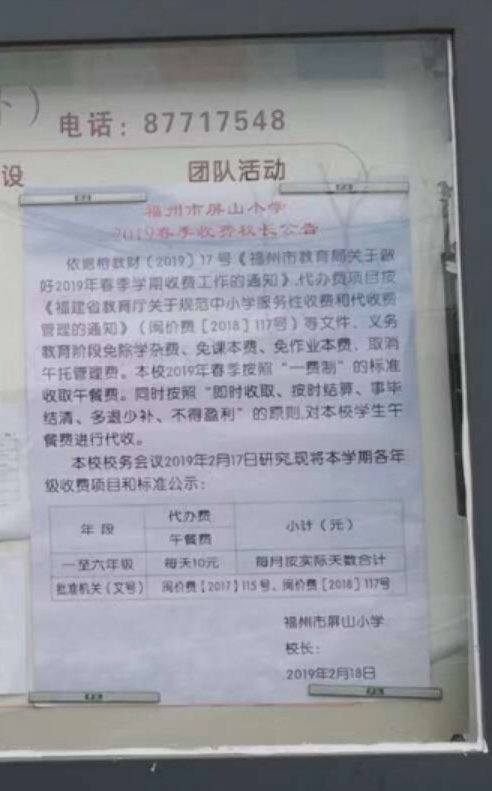 电话：87717548
设
团队活动
福州市屏山小学
2019春季收费校长公告
依据榕教财〔2019〕17号《福州市教育局关于做
好2019年春季学期收费工作的通知》,代办费项目按
《福建省教育厅关于规范中小学服务性收费和代收费
管理的通知》（闽价费［2018］117号）等文件、义务
教育阶段免除学杂费、免课本费、免作业本费、取消
午托管理费。本校2019年春季按照“一费制”的标准
收取午餐费。同时按照“即时收取、按时结算、事毕
结清、多退少补、不得盈利”的原则,对本校学生午
餐费进行代收。
本校校务会议2019年2月17日研究,现将本学期各年
级收费项目和标准公示：
年 段 代办费 小计（元）
午餐费
一至六年级 每天10元 每月按实际天数合计
批准机关（文号） 闽价费【2017】115号、闽价费【2018】117号
福州市屏山小学
校长：
2019年2月18日